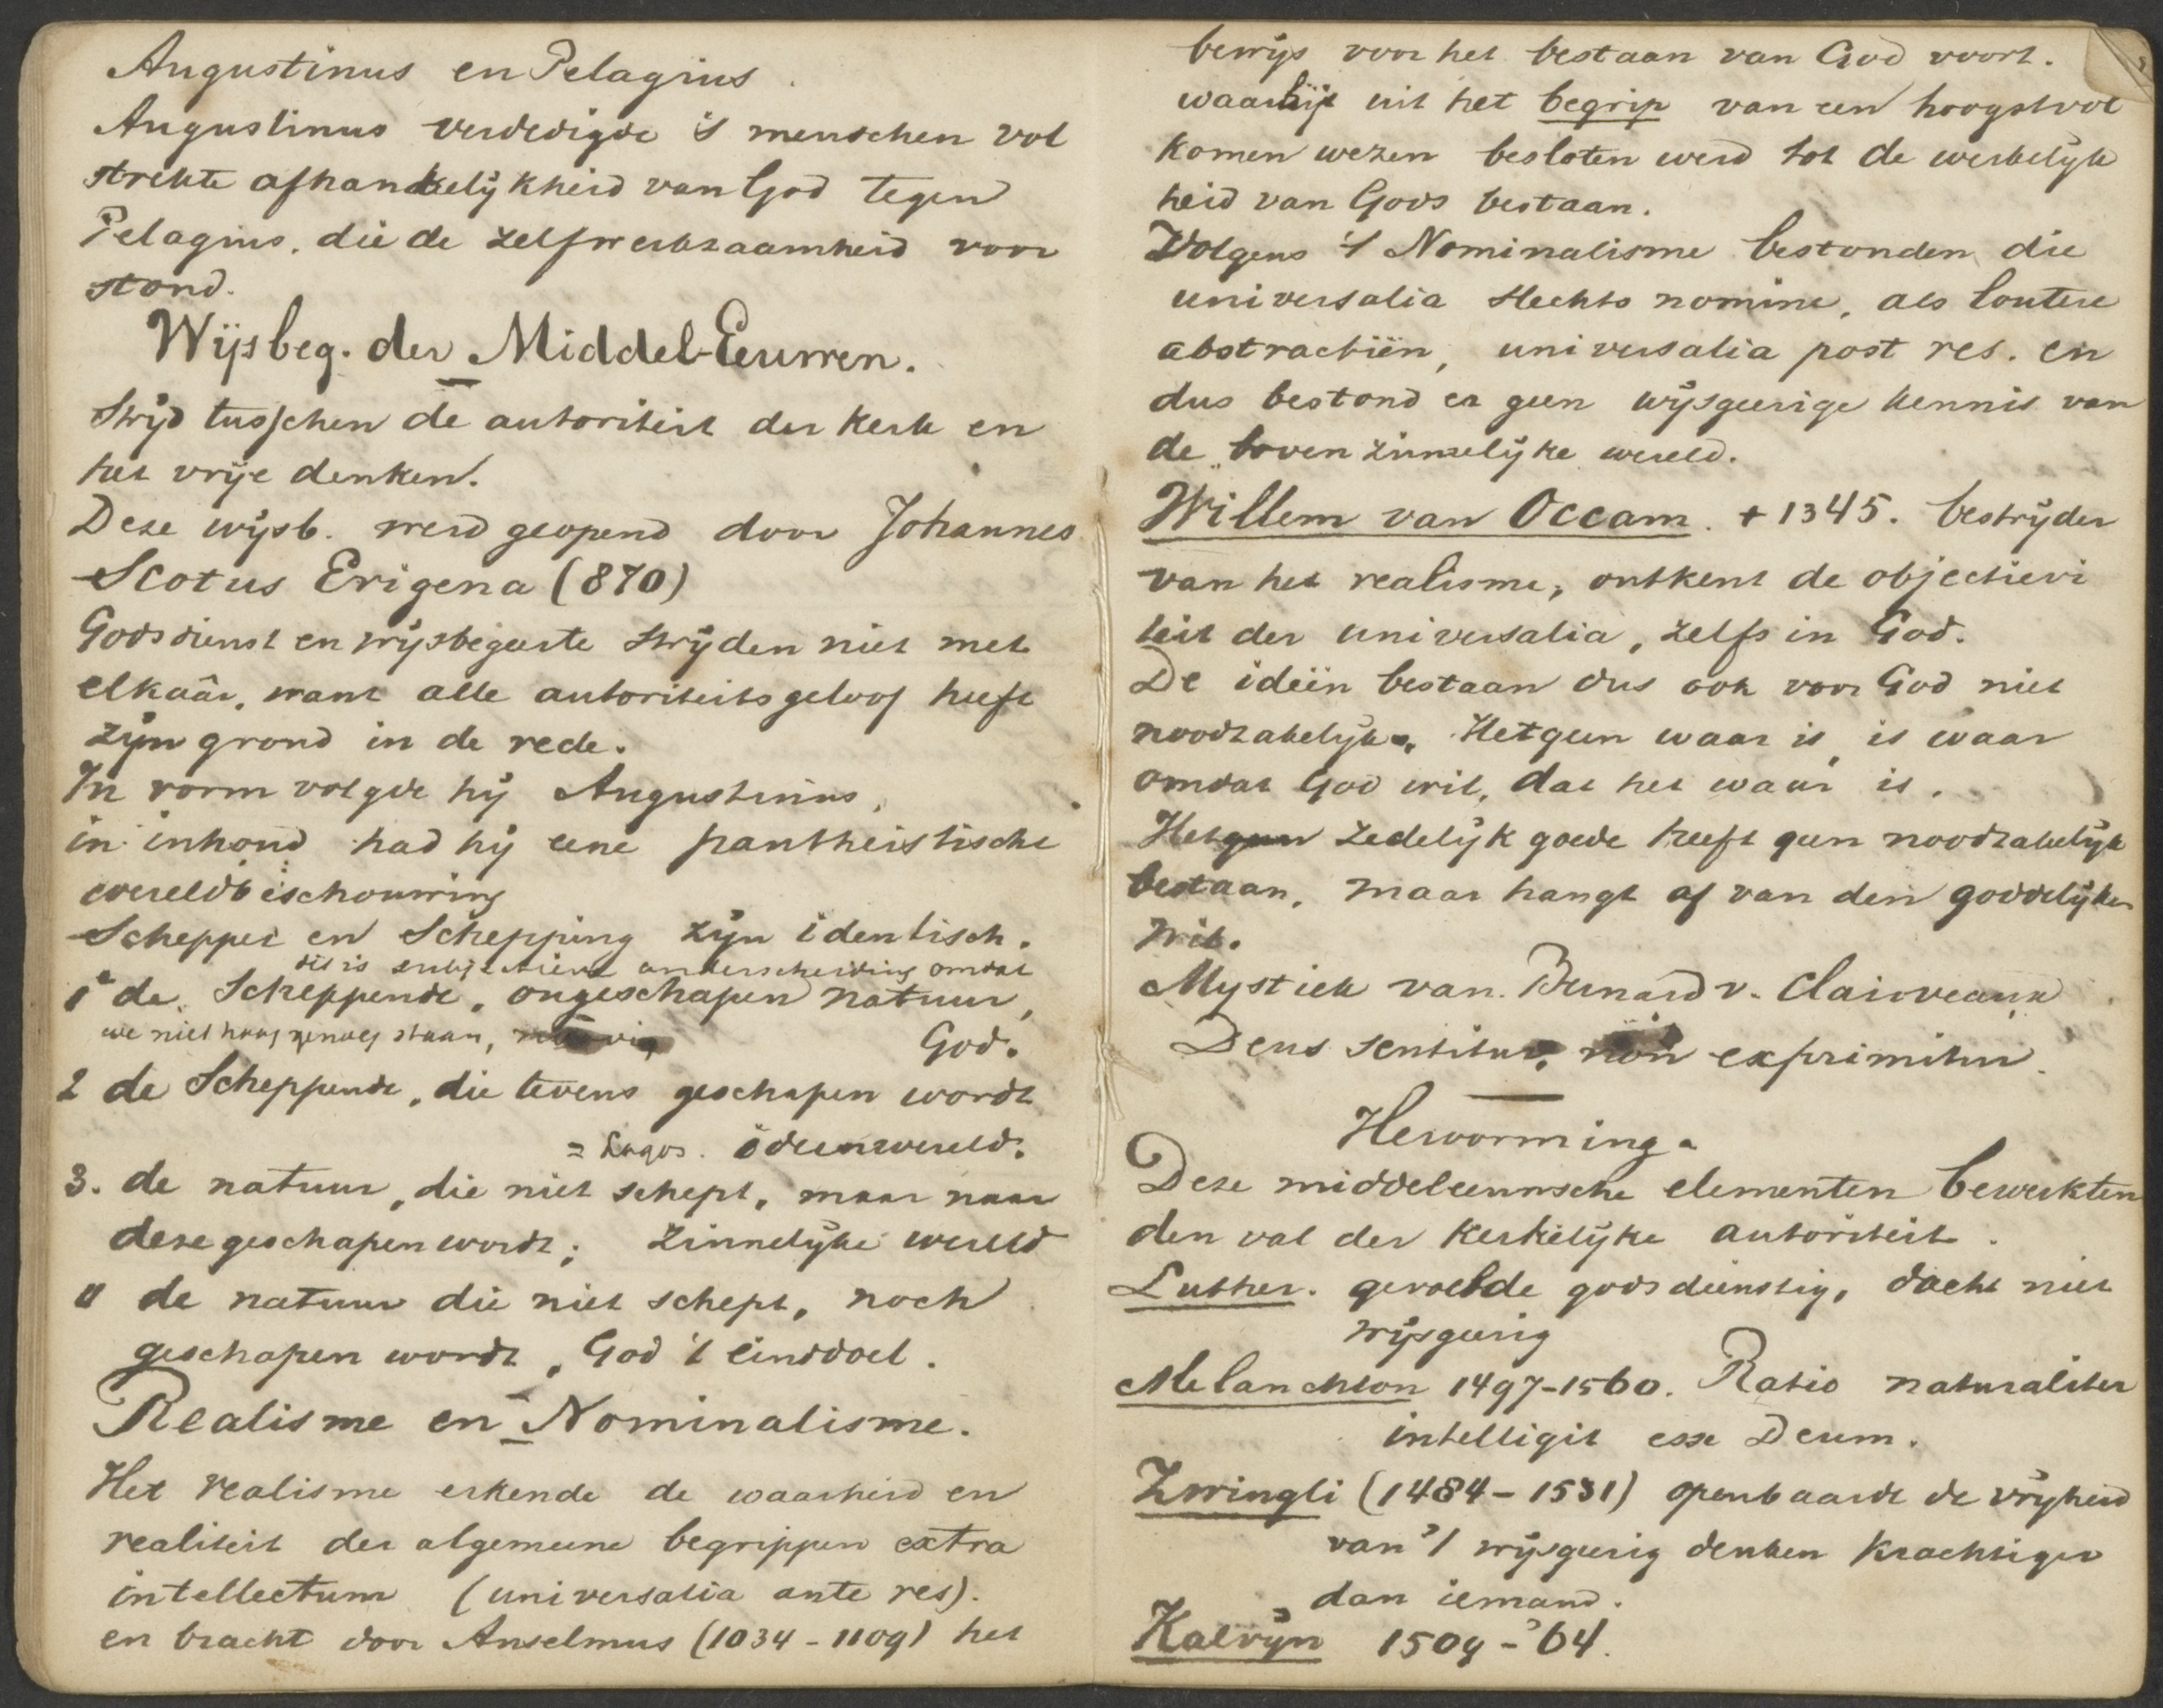 Augustinus en Pelagius.
Augustinus verdedigde 's menschen vol
strekte afhankelijkheid van God tegen
Pelagius, die de zelfwerkzaamheid voor
stond.
Wijsbeg. der Middel-Eeuwen.
Strijd tusschen de autoriteit der kerk en
het vrije denken.
Deze wijsb. werd geopend door Johannes
Scotus Erigena (870)
Godsdienst en wijsbegeerte strijden niet met
elkaâr, want alle autoriteitsgeloof heeft
zijn grond in de rede.
In vorm volgde hij Augustinus,
in inhoud had hij eene pantheistische
wereldbeschouwing
Schepper en Schepping zijn identisch.
dit is subjectieve onderscheiding omdat
1° de Scheppende, ongeschapen natuur,
we niet hoog genoeg staan,
God.
2 de Scheppende, die tevens geschapen wordt
= Logos. ideenwereld.
3. de natuur, die niet schept, maar naar
deze geschapen wordt; zinnelijke wereld
4 de natuur die niet schept, noch
geschapen wordt, God 't einddoel.
Realisme en Nominalisme.
Het realisme erkende de waarheid en
realiteit der algemeene begrippen extra
intellectum (universalia ante res).
en bracht door Anselmus (1034-1109) het
bewijs voor het bestaan van God voort.
waarbij uit het begrip van een hoogstvol
komen wezen besloten werd tot de werkelijk
heid van Gods bestaan.
Volgens 't Nominalisme bestonden die
universalia slechts nomine, als loutere
abstractiën, universalia post res. en
dus bestond er geen wijsgeerige kennis van
de bovenzinnelijke wereld.
Willem van Occam. + 1345. bestrijder
van het realisme, ontkent de objectivi
teit der universalia, zelfs in God.
De ideën bestaan dus ook voor God niet
noodzakelijk. Hetgeen waar is, is waar
omdat God wil, dat het waar is.
Het zedelijk goede heeft geen noodzakelijk
bestaan, maar hangt af van den goddelijken
wil.
Mystiek van Bernard v. Clairveaux
Deus sentitur, non exprimitur.
Hervorming.
Deze middeleeuwsche elementen bewerkten
den val der kerkelijke autoriteit.
Luther. gevoelde godsdienstig, dacht niet
wijsgeerig
Melanchton 1497-1560. Ratio naturaliter
intelligit esse Deum.
Zwingli (1484-1531) openbaarde de vrijheid
van 't wijsgeerig denken krachtiger
dan iemand.
Kalvijn 1509-'64.